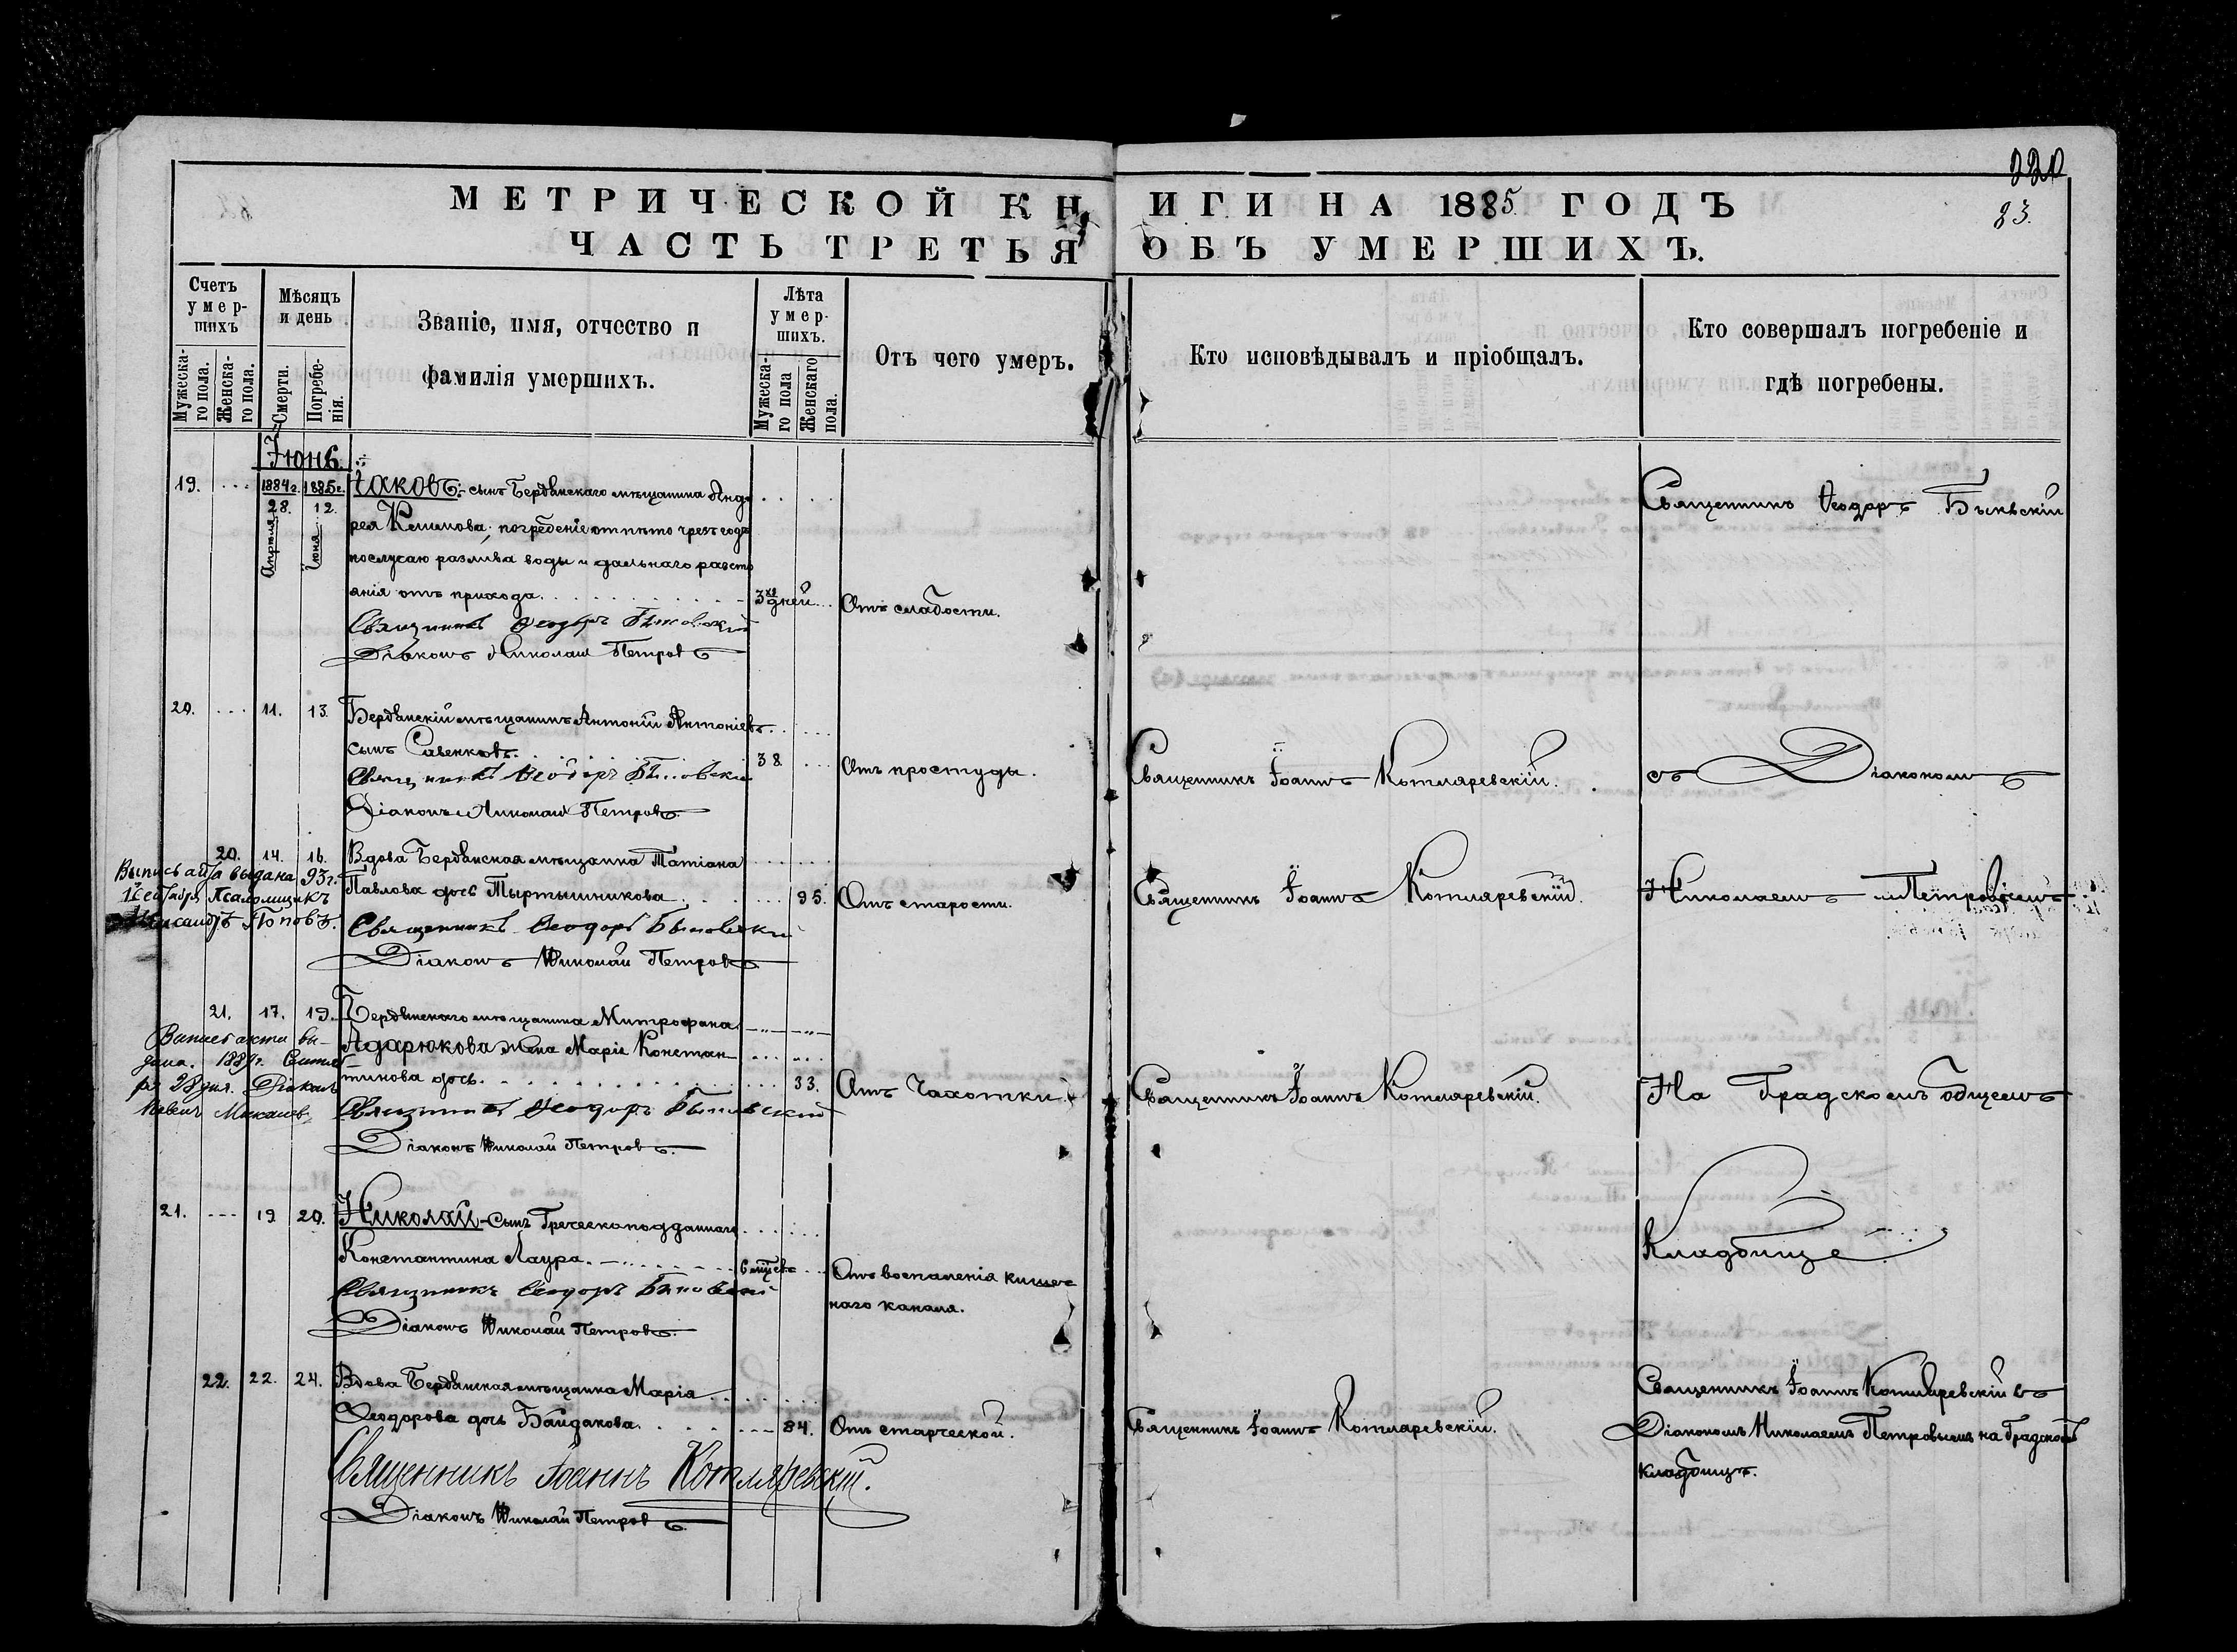 220
МЕТРИЧЕСКОЙ КНИГИ НА 1885 ГОДЪ
83.
ЧАСТЬ ТРЕТЬЯ ОБЪ УМЕРШИХЪ.
Счетъ умер-
шихъ
Мужеска-
го пола.
Женска-
го пола.
Мѣсяцъ
и день
Смерти.
Погребе-
нія.
Званіе, имя, отчество и
фамилія умершихъ.
Лѣта
умер-
шихъ.
Мужеска-
го пола
Женскаго
пола.
Отъ чего умеръ.
Кто исповѣдывалъ и пріобщалъ.
Кто совершалъ погребеніе и
гдѣ погребены.
Іюнь
19. 1884г. 1885г. Іаковъ сынъ Бердянскаго мѣщанина Анд
28. 12. рея погребеніе отпѣто чрезъ годъ
Апрѣля Іюня послучаю разлива воды и дальнаго разсто
янія отъ прихода. 3хъ дней Отъ слабости.
Священникъ Ѳеодоръ
Діаконъ Николай Петровъ
Священникъ Ѳеодоръ
20. 11. 13. Бердянскій мѣщанинъ Антоній Антоніевъ
сынъ Савенковъ. 38. Отъ простуды.
Священникъ Ѳеодоръ
Діаконъ Николай Петровъ
Священникъ Іоаннъ Котляревскій.
съ Діакономъ
20. 14. 16. Вдова Бердянская мѣщанка Татіана
Павлова дочь Тыртышникова 95. Отъ старости.
Священникъ Ѳеодоръ
Діаконъ Николай Петровъ
Выпись акта выдана 93г.
Псаломщикъ
Александръ Поповъ.
Священникъ Іоаннъ Котляревскій.
Николаемъ Петровымъ
21. 17. 19. Бердянскаго мѣщанина Митрофана
Адарюкова жена Марія Констан
тинова дочь. 33. Отъ Чахотки.
Священникъ Ѳеодоръ
Діаконъ Николай Петровъ.
Выпись акта вы-
дана. 1889г. Сентяб
ря 28 дня. Діаконъ
Священникъ Іоаннъ Котляревскій.
На Градскомъ общемъ
21. 19 20. Николай - сынъ Греческоподданнаго
Константина Лаура. 6 мѣсяцевъ Отъ воспаленія кишеч
наго канала.
Священникъ Ѳеодоръ
Діаконъ Николай Петровъ.
Кладбище
22. 22. 24. Вдова Бердянская мѣщанка Марія
Ѳеодорова дочь Байдакова. 84. Отъ старческой.
Священникъ Іоаннъ Котляревскій.
Діаконъ Николай Петровъ
Священникъ Іоаннъ Котляревскій.
Священникъ Іоаннъ Котляревскій съ
Діакономъ Николаемъ Петровымъ на Градскомъ
кладбищѣ.